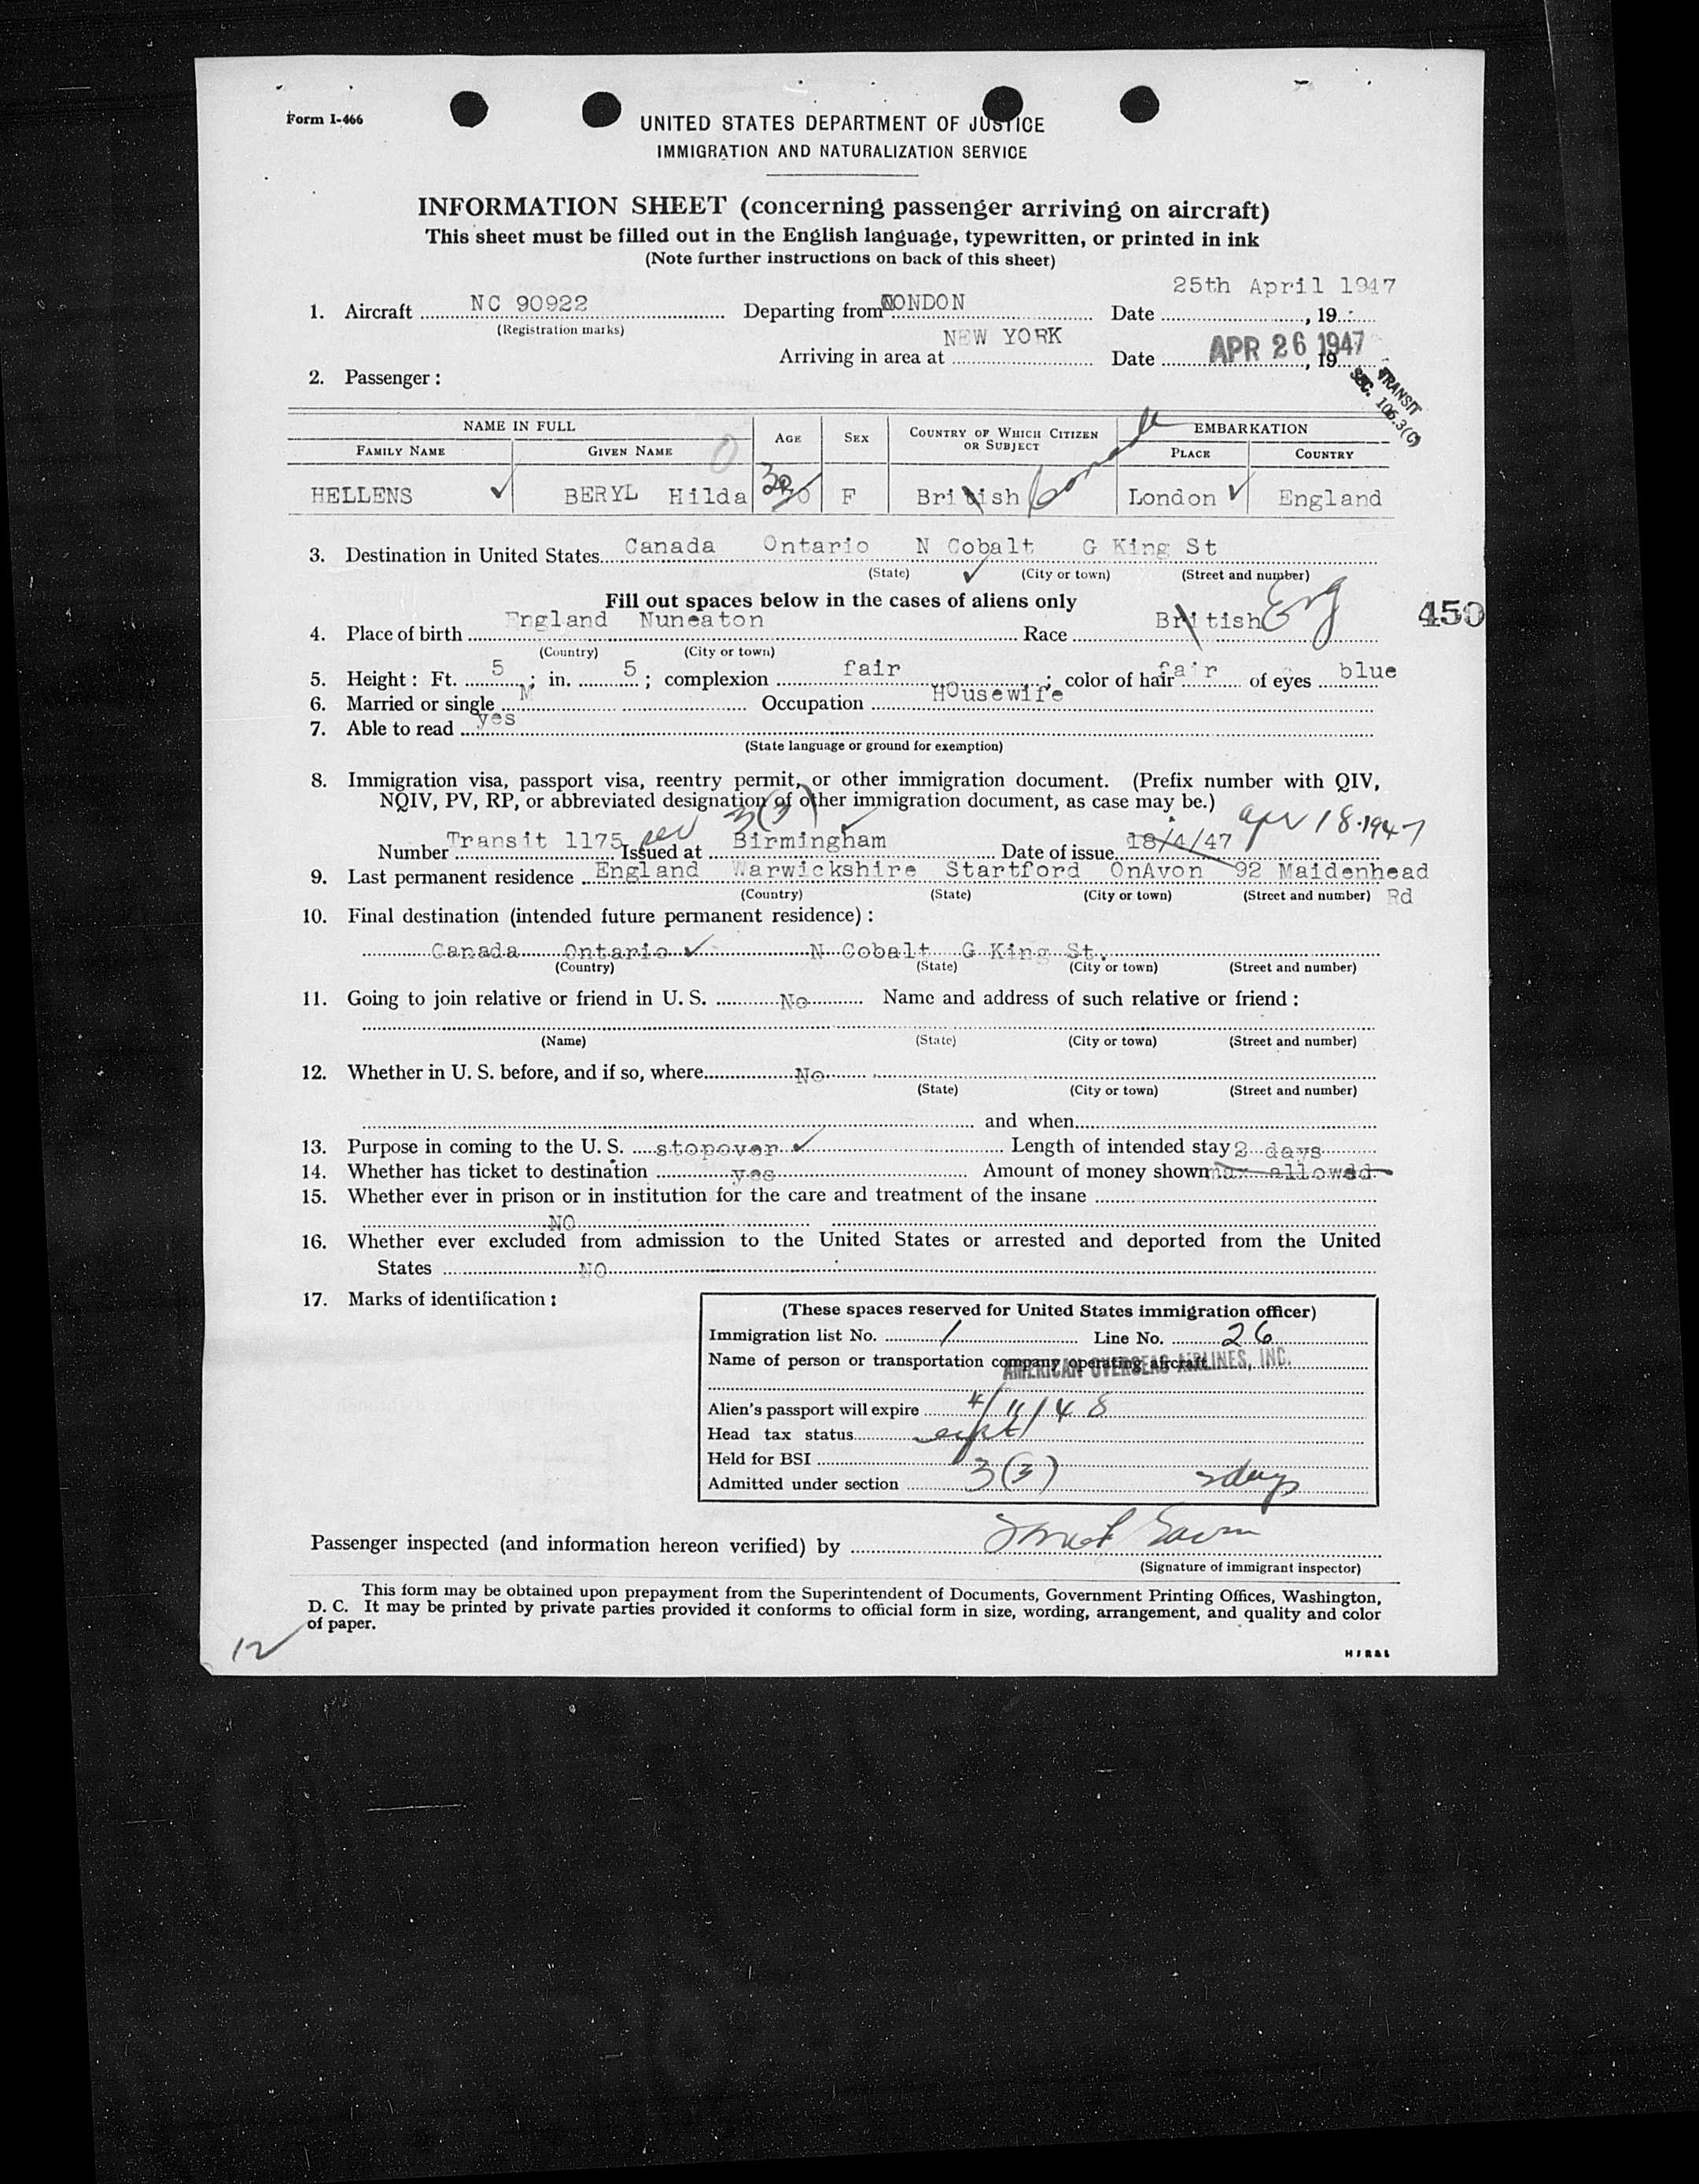 Form I-466
UNITED STATES DEPARTMENT OF JUSTICE
IMMIGRATION AND NATURALIZATION SERVICE
INFORMATION SHEET (concerning passenger arriving on aircraft)
This sheet must be filled out in the English language, typewritten, or printed in ink
(Note further instructions on back of this sheet)
25th April 1947
1. Aircraft NC 90922 Departing from LONDON Date , 19
(Registration marks)
Arriving in area at NEW YORK Date APR 26 1947 , 19
TRANSIT
SEC. 106.3(C)
2. Passenger:
NAME IN FULL AGE SEX COUNTRY OF WHICH CITIZEN OR SUBJECT EMBARKATION
FAMILY NAME GIVEN NAME PLACE COUNTRY
HELLENS ✓ BERYL Hilda 30 F British Canada London ✓ England
3. Destination in United States Canada Ontario N Cobalt G King St
(State) ✓ (City or town) (Street and number)
Fill out spaces below in the cases of aliens only
4. Place of birth England Nuneaton Race British Eng 450
(Country) (City or town)
5. Height: Ft. 5 ; in. 5 ; complexion fair ; color of hair fair of eyes blue
6. Married or single M Occupation HOusewife
7. Able to read yes
(State language or ground for exemption)
8. Immigration visa, passport visa, reentry permit, or other immigration document. (Prefix number with QIV,
NQIV, PV, RP, or abbreviated designation of other immigration document, as case may be.)
3(3) Apr 18-1947
Number Transit 1175 Issued at Birmingham ✓ Date of issue 18/4/47
9. Last permanent residence England Warwickshire Startford OnAvon 92 Maidenhead
(Country) (State) (City or town) (Street and number) Rd
10. Final destination (intended future permanent residence):
Canada Ontario ✓ N Cobalt G King St.
(Country) (State) (City or town) (Street and number)
11. Going to join relative or friend in U. S. No Name and address of such relative or friend:
(Name) (State) (City or town) (Street and number)
12. Whether in U. S. before, and if so, where No
(State) (City or town) (Street and number)
and when
13. Purpose in coming to the U. S. stopover ✓ Length of intended stay 2 days
14. Whether has ticket to destination yes Amount of money shown max allowed
15. Whether ever in prison or in institution for the care and treatment of the insane
NO
16. Whether ever excluded from admission to the United States or arrested and deported from the United
States NO
17. Marks of identification:
(These spaces reserved for United States immigration officer)
Immigration list No. 1 Line No. 26
Name of person or transportation company operating aircraft AMERICAN OVERSEAS AIRLINES, INC.
Alien's passport will expire 4/11/48
Head tax status
Held for BSI
Admitted under section 3(3) 2 days
Passenger inspected (and information hereon verified) by
(Signature of immigrant inspector)
This form may be obtained upon prepayment from the Superintendent of Documents, Government Printing Offices, Washington,
D. C. It may be printed by private parties provided it conforms to official form in size, wording, arrangement, and quality and color
of paper.
12